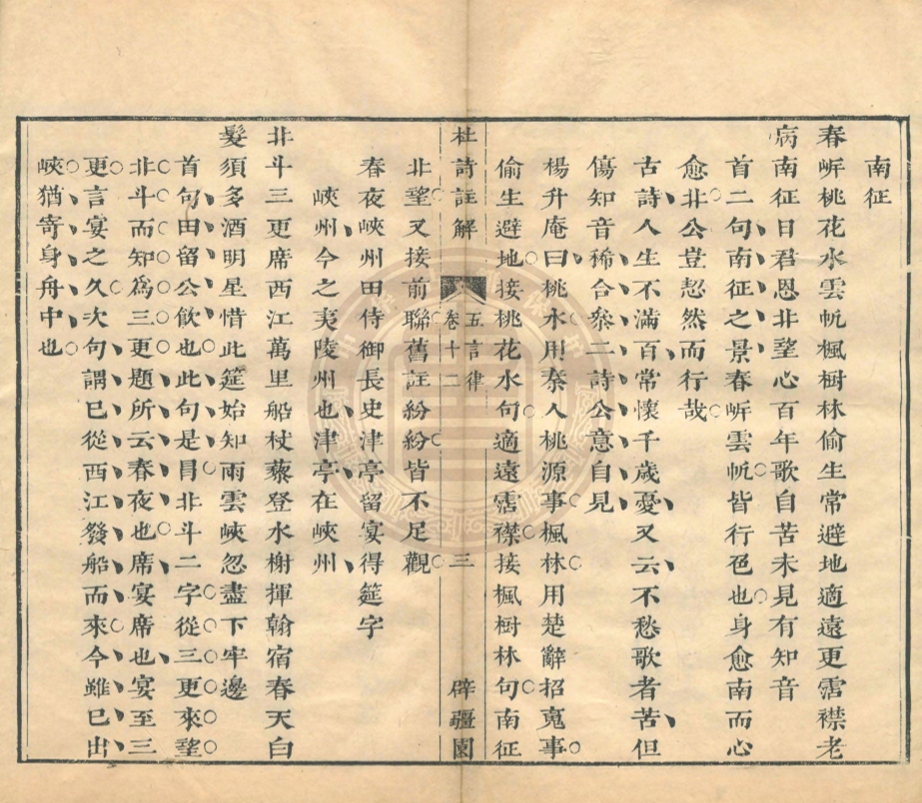 南征
春㟁桃花水雲帆楓樹林偷生常避地適遠更霑襟老
病南征日君恩北望心百年歌自苦未見有知音
首二句南征之景春㟁雲帆皆行色也身愈南而心
愈北公豈恝然而行哉
古詩人生不滿百常懷千歲憂又云不愁歌者苦但
傷知音稀合參二詩公意自見
楊升庵曰桃水用秦人桃源事楓林用楚辭招寃事
偷生避地接桃花水句適遠霑襟接楓樹林句南征
杜詩註解
五言律
卷十二
三
辟疆園
北望又接前聯舊註紛紛皆不足觀
春夜峽州田侍御長史津亭留宴得筵字
峽州今之夷陵州也津亭在峽州
北斗三更席西江萬里船杖藜登水榭揮翰宿春天白
髮須多酒明星惜此筵始知雨雲峽忽盡下牢邊
首句由留公飲也此句是冐北斗二字從三更來望
北斗而知爲三更題所云春夜也席宴席也宴至三
更言宴之久次句謂已從西江發船而來今雖已出
峽猶寄身舟中也